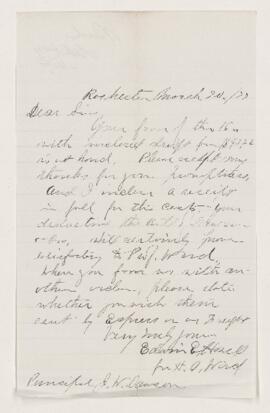 Rochester March 20, /
Dear Sir,
Your favor of the 16
with enclosed draft for
is at hand. Please accept my
thanks for your promptness,
and I enclose a receipt
in full for the casts. Your
directions
will certainly prove
satisfactory to Prof. Ward.
When you favor us with an-
other order, please state
whether you wish them
sent by Express or as Freight
Very truly yours
Edwin E. Howell
for H. A. Ward
Principal J. W. Dawson